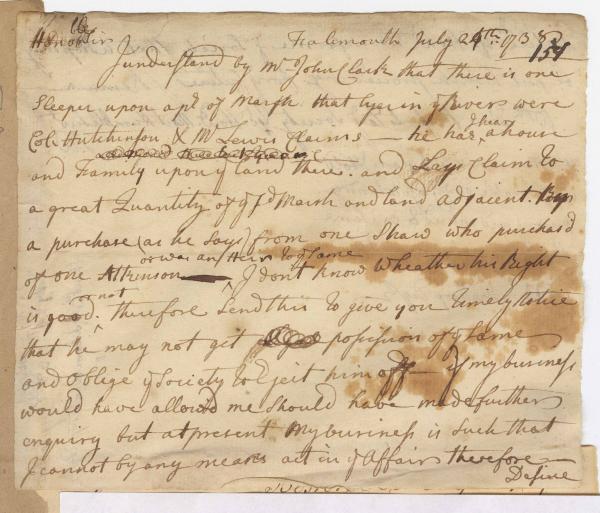 Hono.ble Sir Falemouth July 24th. 1738
157
I understand by Mr John Clark that there is one
Sleeper upon a pt. of Marsh that lyes in ye Rivers were
Col. Hutchinson & Mr Lewis Claims — he has, I hear a house
and Family upon ye land there. and Lays Claim to
a great Quantity of ye sd Marsh and land adjacent. By
a purchase (as he says) from one Shaw who purchasd
of one Atkinson or was an Heir to ye same I don't know Wheather his Right
is good. or not therefore Send this to give you timely Notice
that he may not get possession of ye Same
and Oblige ye Society to Eject him off — if my business
would have allowed me should have made further
enquiry but at present My business is Such that
I cannot by any means act in ye Affair therefore
Desire